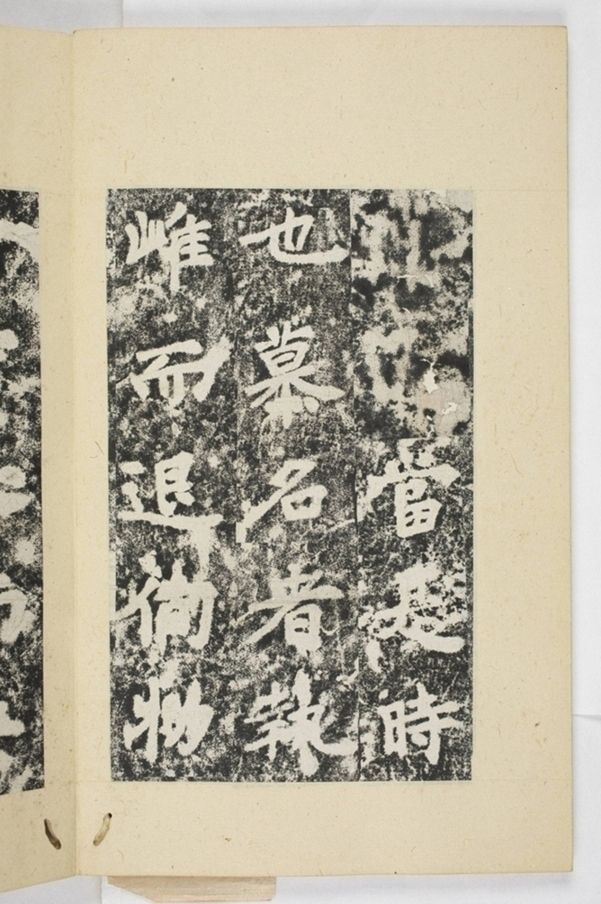 當是時
也慕名者執
而退俻物